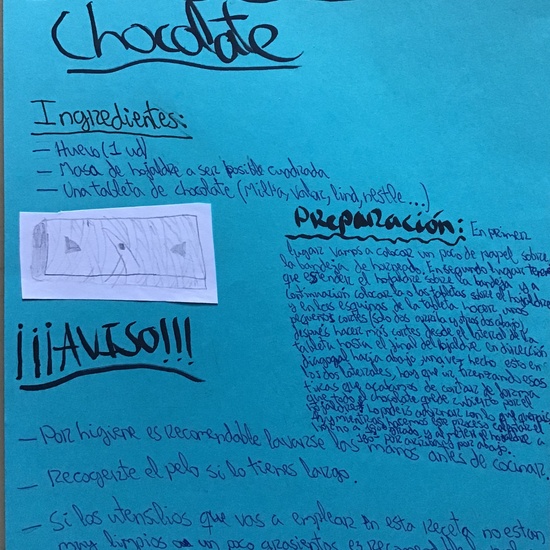 Chocolate
Ingredientes:
- Huevo (1 ud)
- Masa de hojaldre a ser posible cuadrada
- Una tableta de chocolate (Milka, Valor, lind, nestle ...)
Preparación: En primer
lugar vamos a colocar un poco de papel sobre
la bandeja de horneado. En segundo lugar
que extender el hojaldre sobre la bandeja y a
continuación colocar la o las tabletas sobre el hojaldre
y en las esquinas de la tableta, hacer unos
pequeños cortes (dos arriba y dos abajo)
después hacer más cortes desde el lateral de la
tableta hasta el final del hojaldre, en dirección
diagonal hacia abajo, una vez hecho esto en
los dos laterales, hay que ir trenzando esas
tiras que acabamos de cortar de forma
que todo el chocolate quede cubierto por el
hojaldre
¡¡¡AVISO!!!
- Por higiene es recomendable lavarse las manos antes de cocinar.
- Recogerte el pelo si lo tienes largo.
- Si los utensilios que vas a emplear en esta receta no estan
muy limpios o un poco grasientos es